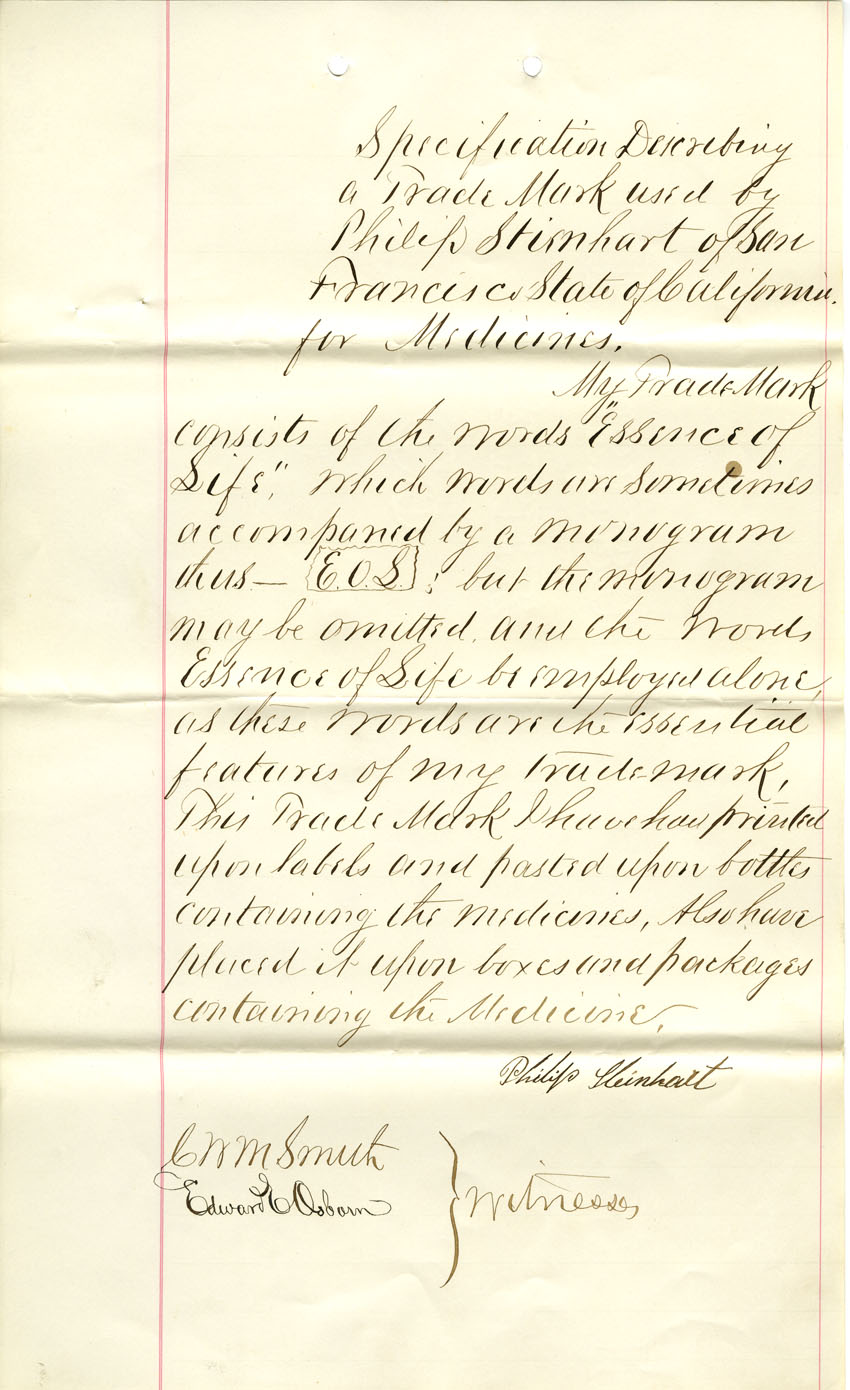 Specification Describing
a Trade Mark used by
Philip Stienhart of San
Francisco State of California.
for Medicines.
My Trade Mark
consists of the words "Essence of
Life", which words are sometimes
accompaned by a monogram
thus— E.O.L. ; but the monogram
may be omitted and the words
Essence of Life be employed alone,
as these words are the essential
features of my trademark,
This Trade Mark I have had printed
upon labels and pasted upon bottles
containing the medicines, Also have
placed it upon boxes and packages
containing the Medicine.
Philip Steinhart
C W M Smith
Edward E Osborn
Witnesses